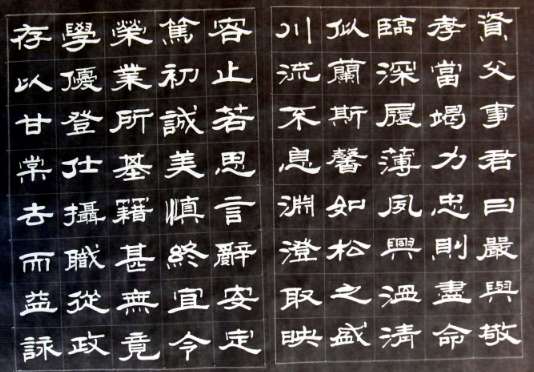 資父事君曰嚴與敬
孝當竭力忠則盡命
臨深履薄夙興溫凊
似蘭斯馨如松之盛
川流不息淵澄取映
容止若思言辭安定
篤初誠美慎終宜令
榮業所基籍甚無竟
學優登仕攝職從政
存以甘棠去而益詠